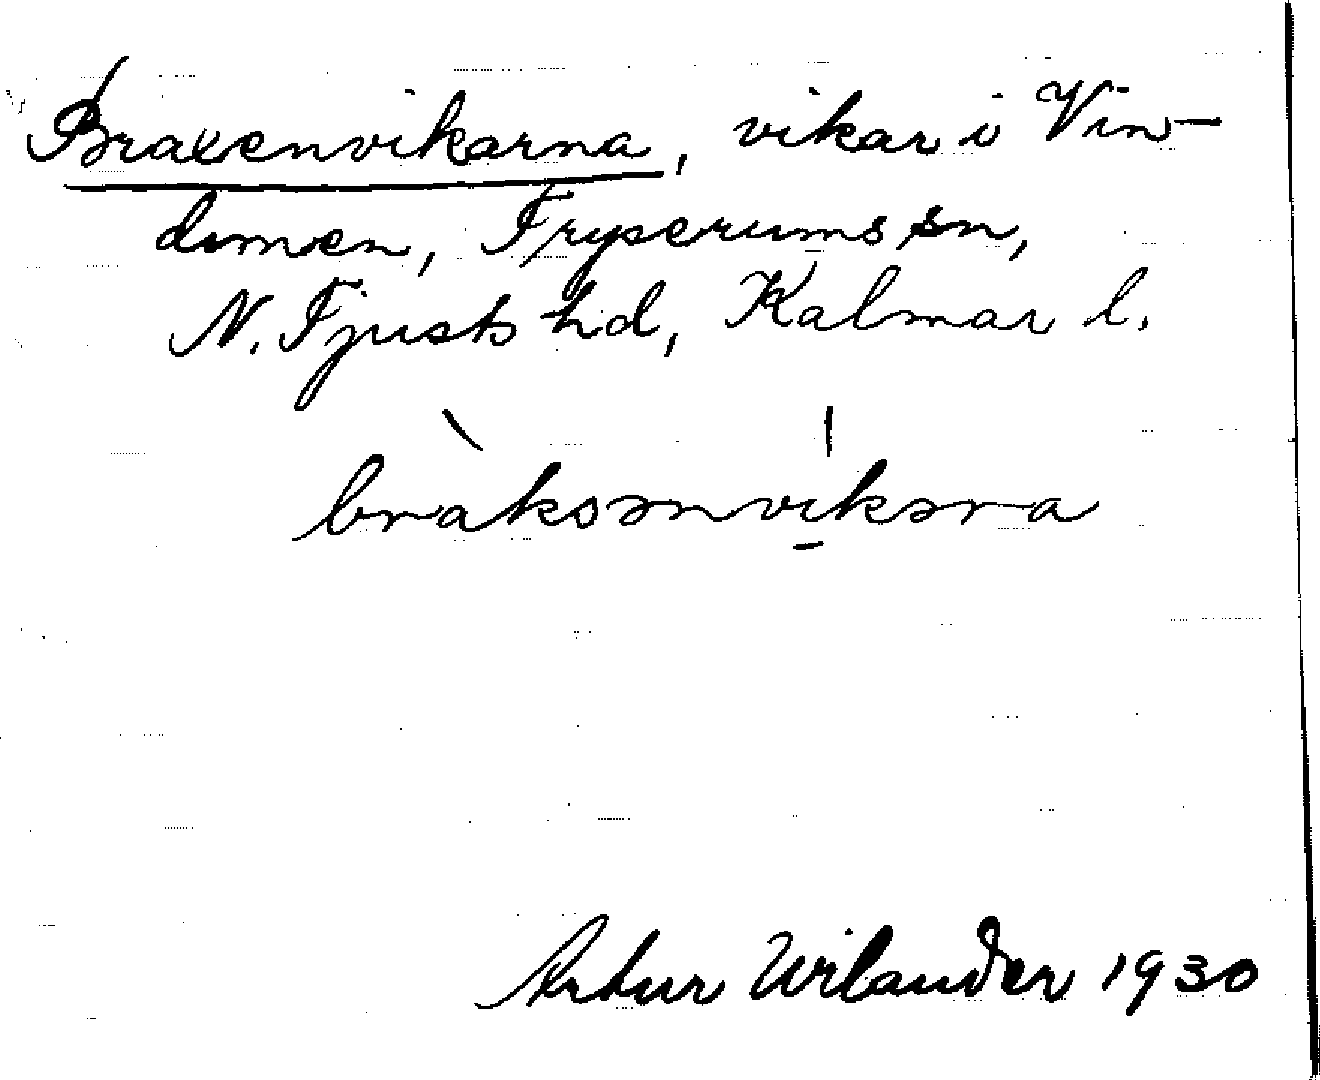 Braxenvikarna, vikar i Vin-
dommen, Fryserums sn,
N. Tjusts hd, Kalmar l.
bràksənvi̱kəṛna
Artur Wilander 1930